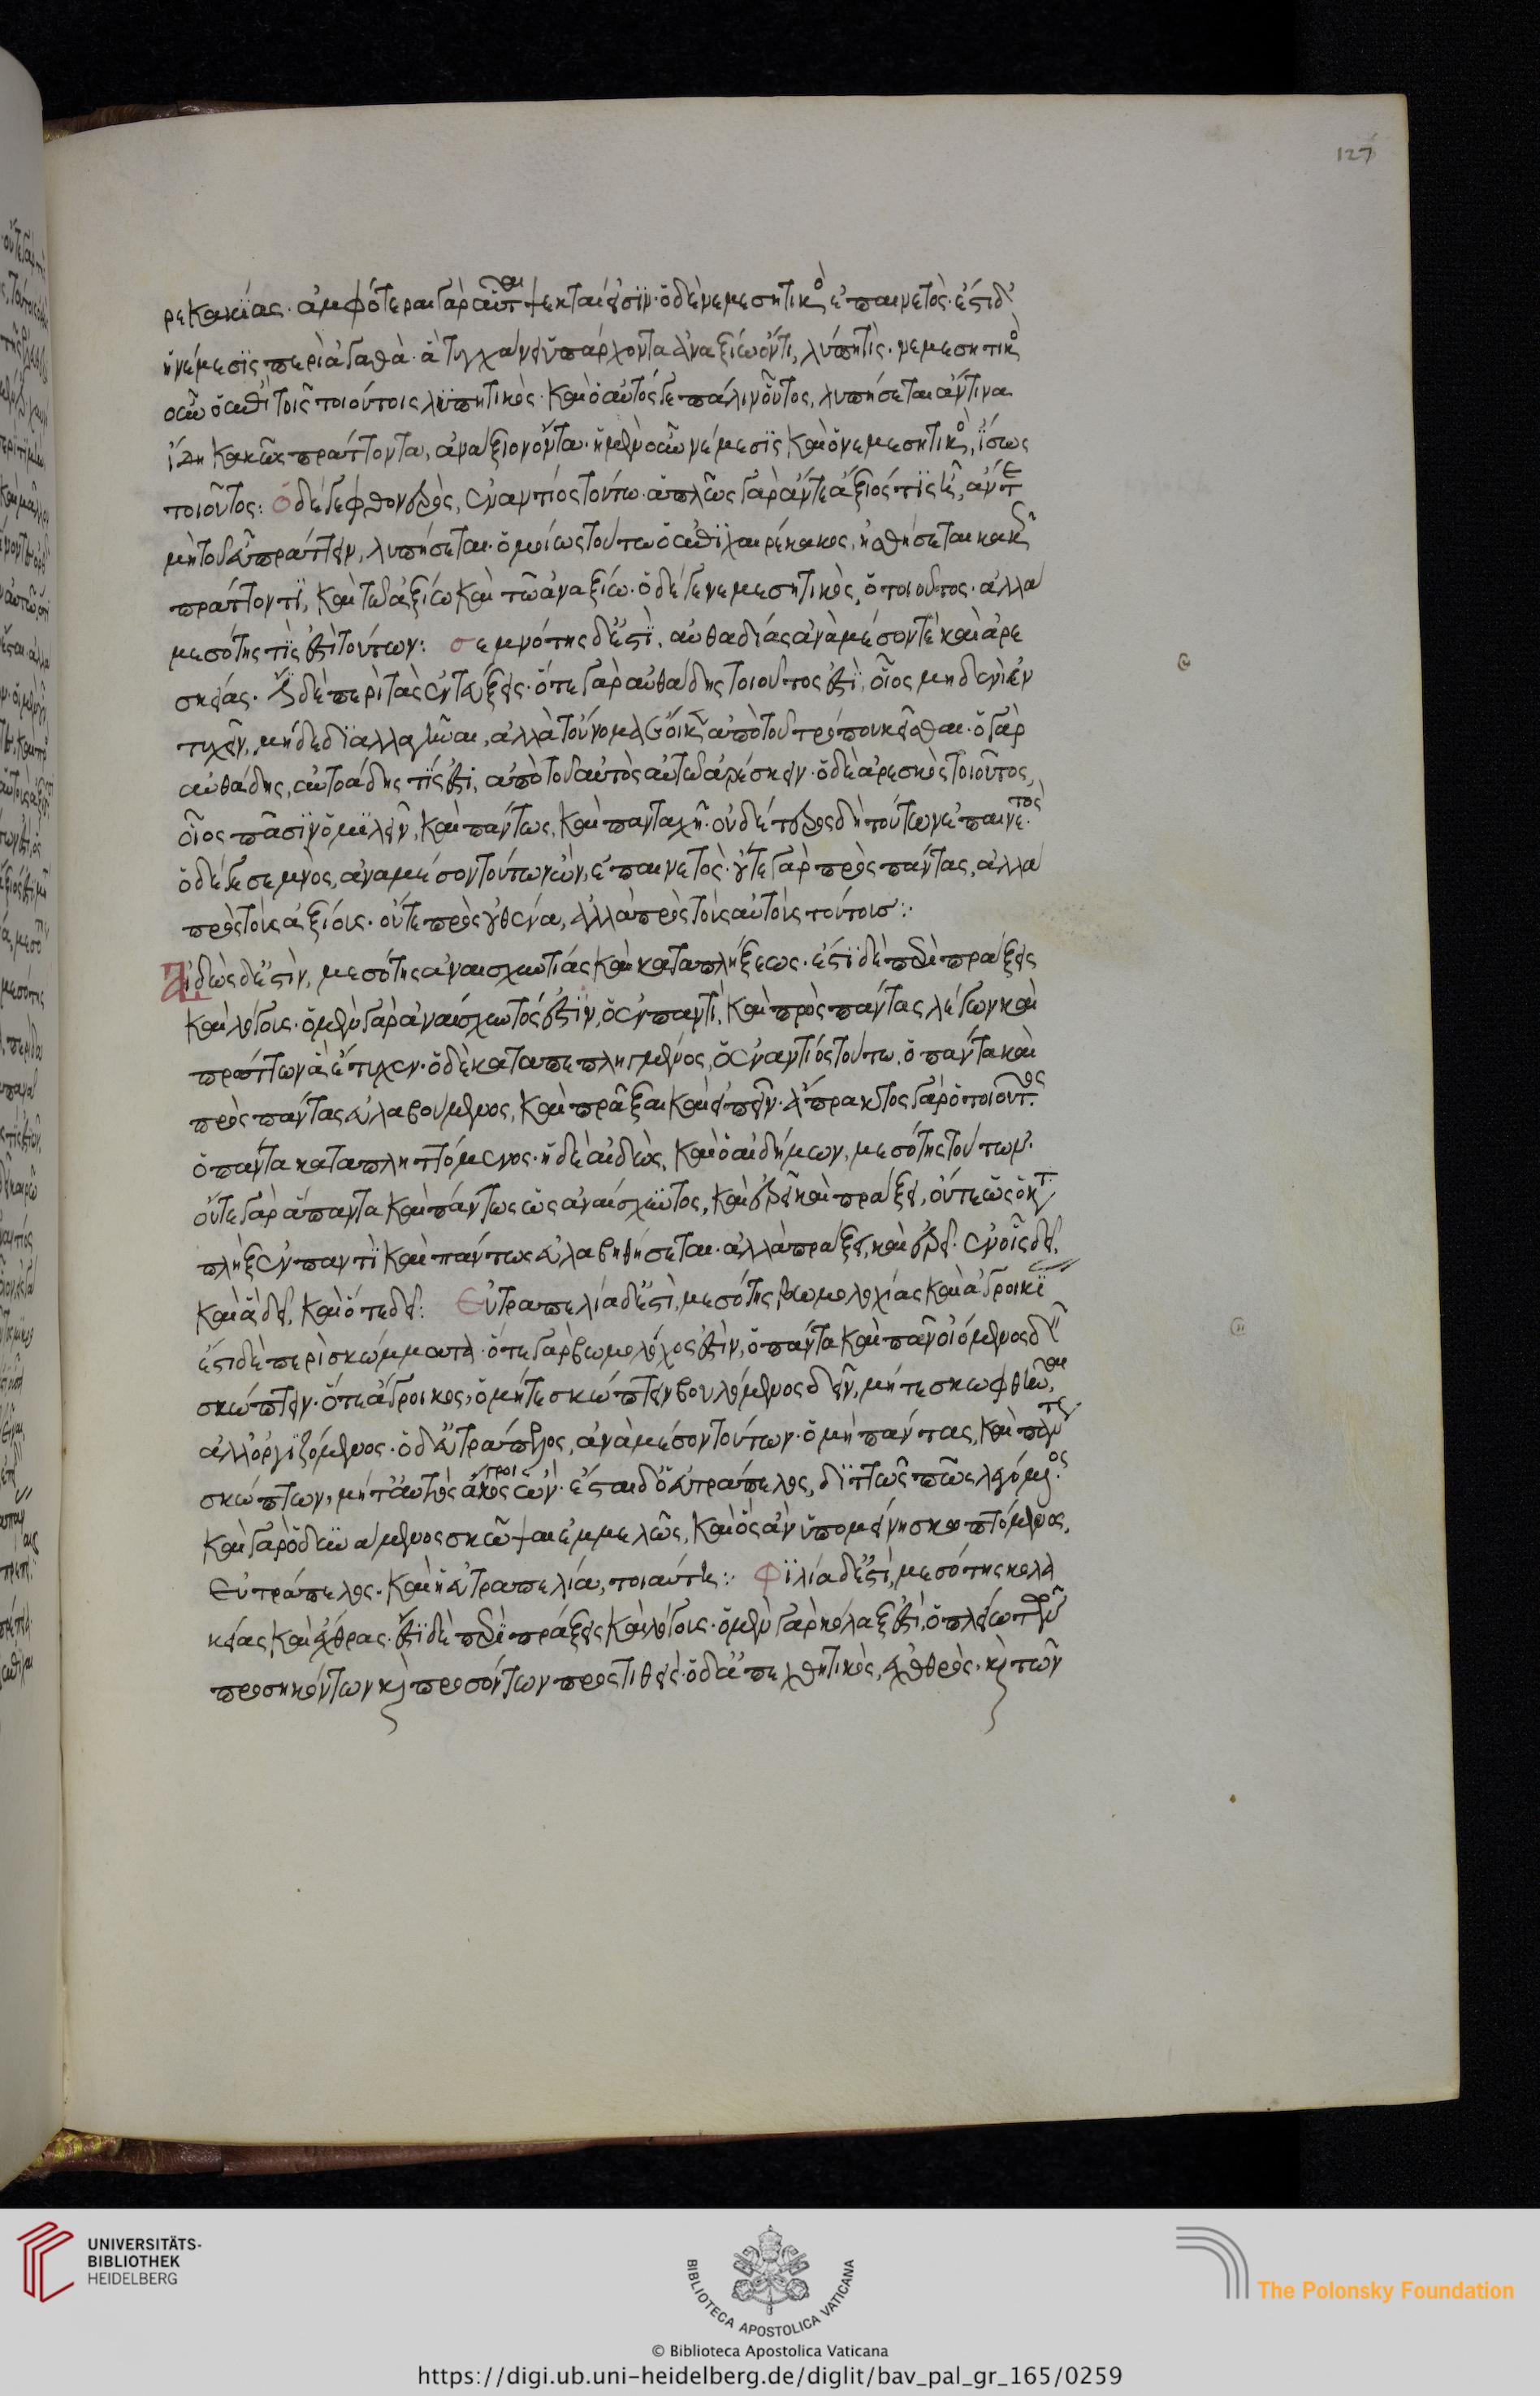 ρεκακίας. ἀμφότεραι γὰρ αὗται ψεκταί εἰσϊν. ὁ δὲ νεμεσητικὸς ἐπαινετὸς. ἐστὶ δ'
ἡ νέμεσϊς περὶ ἀγαθὰ. ἃ τυγχάνει ὑπάρχοντα ἀναξίω ὄντι, λύπη τὶς. νεμεσητικὸς
οὖν ὁ ἐπὶ τοῖς τοιούτοις λϋπητικὸς. καὶ ὁ αὐτός γε πάλιν οὗτος, λυπήσεται ἄν τινα
ἴδη κακῶς πράττοντα, ἀνάξιον ὄντα. ἡ μὲν οὖν νέμεσϊς καὶ ὁ νεμεσητικὸς, ἴσως
τοιοῦτος: ὁ δέ γε φθονερὸς, ἐναντίος τούτω. ἁπλῶς γὰρ ἄν τε ἄξιός τϊς ἦ, ἄν τε
μὴ τοῦ εὖ πράττειν, λυπήσεται. ὁμοίως τούτω ὁ ἐπϊχαιρέκακος, ἡσθήσεται κακῶς
πράττοντϊ, καὶ τῶ ἀξίω καὶ τῶ ἀναξίω. ὁ δέ γε νεμεσητικὸς, οὐ τοιοῦτος. ἀλλὰ
μεσότης τὶς ἐστὶ τούτων: σεμνότης δέ ἐστϊ, αὐθαδίας ἀνὰ μέσον τὲ καὶ ἀρε
σκείας. ἔστι δὲ περὶ τὰς ἐντεύξεις. ὅ τε γὰρ αὐθάδης τοιοῦτος ἐστϊ, οἷος μηδενὶ ἐν
τυχεῖν, μηδὲ δϊαλλαγῆναι, ἀλλὰ τοὔνομα ἔοικεν ἀπὸ τοῦ τρόπου κεῖσθαι. ὁ γὰρ
αὐθάδης, αὐτοάδης τίς ἐστι, ἀπὸ τοῦ αὐτὸς αὑτῶ ἀρέσκειν. ὁ δὲ ἀρεσκὸς τοιοῦτος,
οἷος πᾶσϊν ὁμιλεῖν, καὶ πάντως, καὶ πανταχῆ. οὐδέτερος δὴ τούτων ἐπαινετὸς.
ὁ δέ γε σεμνὸς, ἀνα μέσον τούτων ὢν, ἐπαινετὸς. οὔτε γὰρ πρὸς πάντας, ἀλλὰ
πρὸς τοὺς ἀξίους. οὔτε πρὸς οὐθένα, ἀλλὰ πρὸς τοὺς αὐτοὺς τούτους:
Αἰδὼς δέ ἐστὶν, μεσότης ἀναισχυντίας καὶ καταπλήξεως. ἐστϊ δὲ περὶ πράξεις
καὶ λόγους. ὁ μὲν γὰρ ἀναίσχυντός ἐστϊν, ὁ ἐν παντὶ, καὶ πρὸς πάντας λέγων καὶ
πράττων ἃ ἔτυχεν. ὁ δὲ καταπεπληγμένος, ὁ ἐναντίος τούτω, ὁ πάντα καὶ
πρὸς πάντας εὐλαβούμενος, καὶ πρᾶξαι καὶ εἰπεῖν. ἄπρακτος γὰρ ὁ τοιοῦτος
ὁ πάντα καταπληττόμενος. ἡ δὲ αἰδὼς, καὶ ὁ αἰδήμων, μεσότης τούτων.
οὔτε γὰρ ἅπαντα καὶ πάντως ὡς ἀναίσχυντος, καὶ ἐρεῖ καὶ πράξει, οὔτε ὡς ὁ κατα
πλὴξ ἐν παντὶ καὶ πάντως εὐλαβηθήσεται. ἀλλὰ πράξει, καὶ ἐρεῖ. ἐν οἷς δεῖ,
καὶ ἃ δεῖ, καὶ ὅτε δεῖ: Εὐτραπελία δέ ἐστὶ, μεσότης βωμολοχίας καὶ ἀγροικίας
ἐστὶ δὲ περὶ σκώμματα. ὅ τε γὰρ βωμολόχος ἐστὶν, ὁ πάντα καὶ πᾶν οἰόμενος δεῖν
σκώπτειν. ὅ τε ἄγροικος, ὁ μήτε σκώπτειν βουλόμενος δεῖν, μήτε σκωφθῆναι,
ἀλλ' ὀργϊζόμενος. ὁ δ' εὐτράπελος, ἀνὰ μέσον τούτων. ὁ μὴ πάντας, καὶ πάντως
σκώπτων, μήτ' αὐτὸς ἄγροικος ὤν. ἔσται δ' ὁ εὐτράπελος, διττῶς πῶς λεγόμενος
καὶ γὰρ ὁ δυνάμενος σκῶψαι ἐμμελῶς, καὶ ὃς ἂν ὑπομείνη σκωπτόμενος,
Εὐτράπελος. καὶ ἡ εὐτραπελία, τοιαύτη: Φϊλία δέ ἐστὶ, μεσότης κολα
κείας καὶ ἔχθρας. ἔστϊ δὲ περὶ πράξεις καὶ λόγους. ὁ μὲν γὰρ κόλαξ ἐστὶ, ὁ πλείω τῶν
προσηκόντων καὶ προσόντων προστιθεὶς. ὁ δ' ἀπεχθητικὸς, ἐχθρὸς. καὶ τῶν
127
UNIVERSITÄTS-
BIBLIOTHEK
HEIDELBERG
BIBLIOTECA APOSTOLICA VATICANA
The Polonsky Foundation
© Biblioteca Apostolica Vaticana
https://digi.ub.uni-heidelberg.de/diglit/bav_pal_gr_165/0259